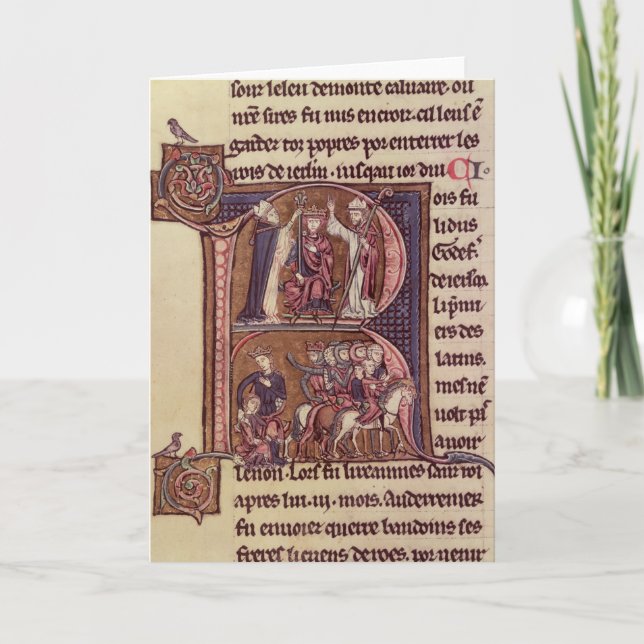 sour leleu demonte caluaire. ou
nr̄e sires fu mus encroiz. cil leus ē
garder toz propres por enterrer les
rois de ierlm. iusqau ior dui CI.
R
ois fu
li dus
Godef.
de ierlm.
li p̄mi
ers des
latins.
mes nē
uolt pas
auoir
lenon. Lors fu lireaumes sanz roi
apres lui. iij. mois. Auderrenier
fu enuoier querre baudoins ses
freres li cuens deroes. por uenir